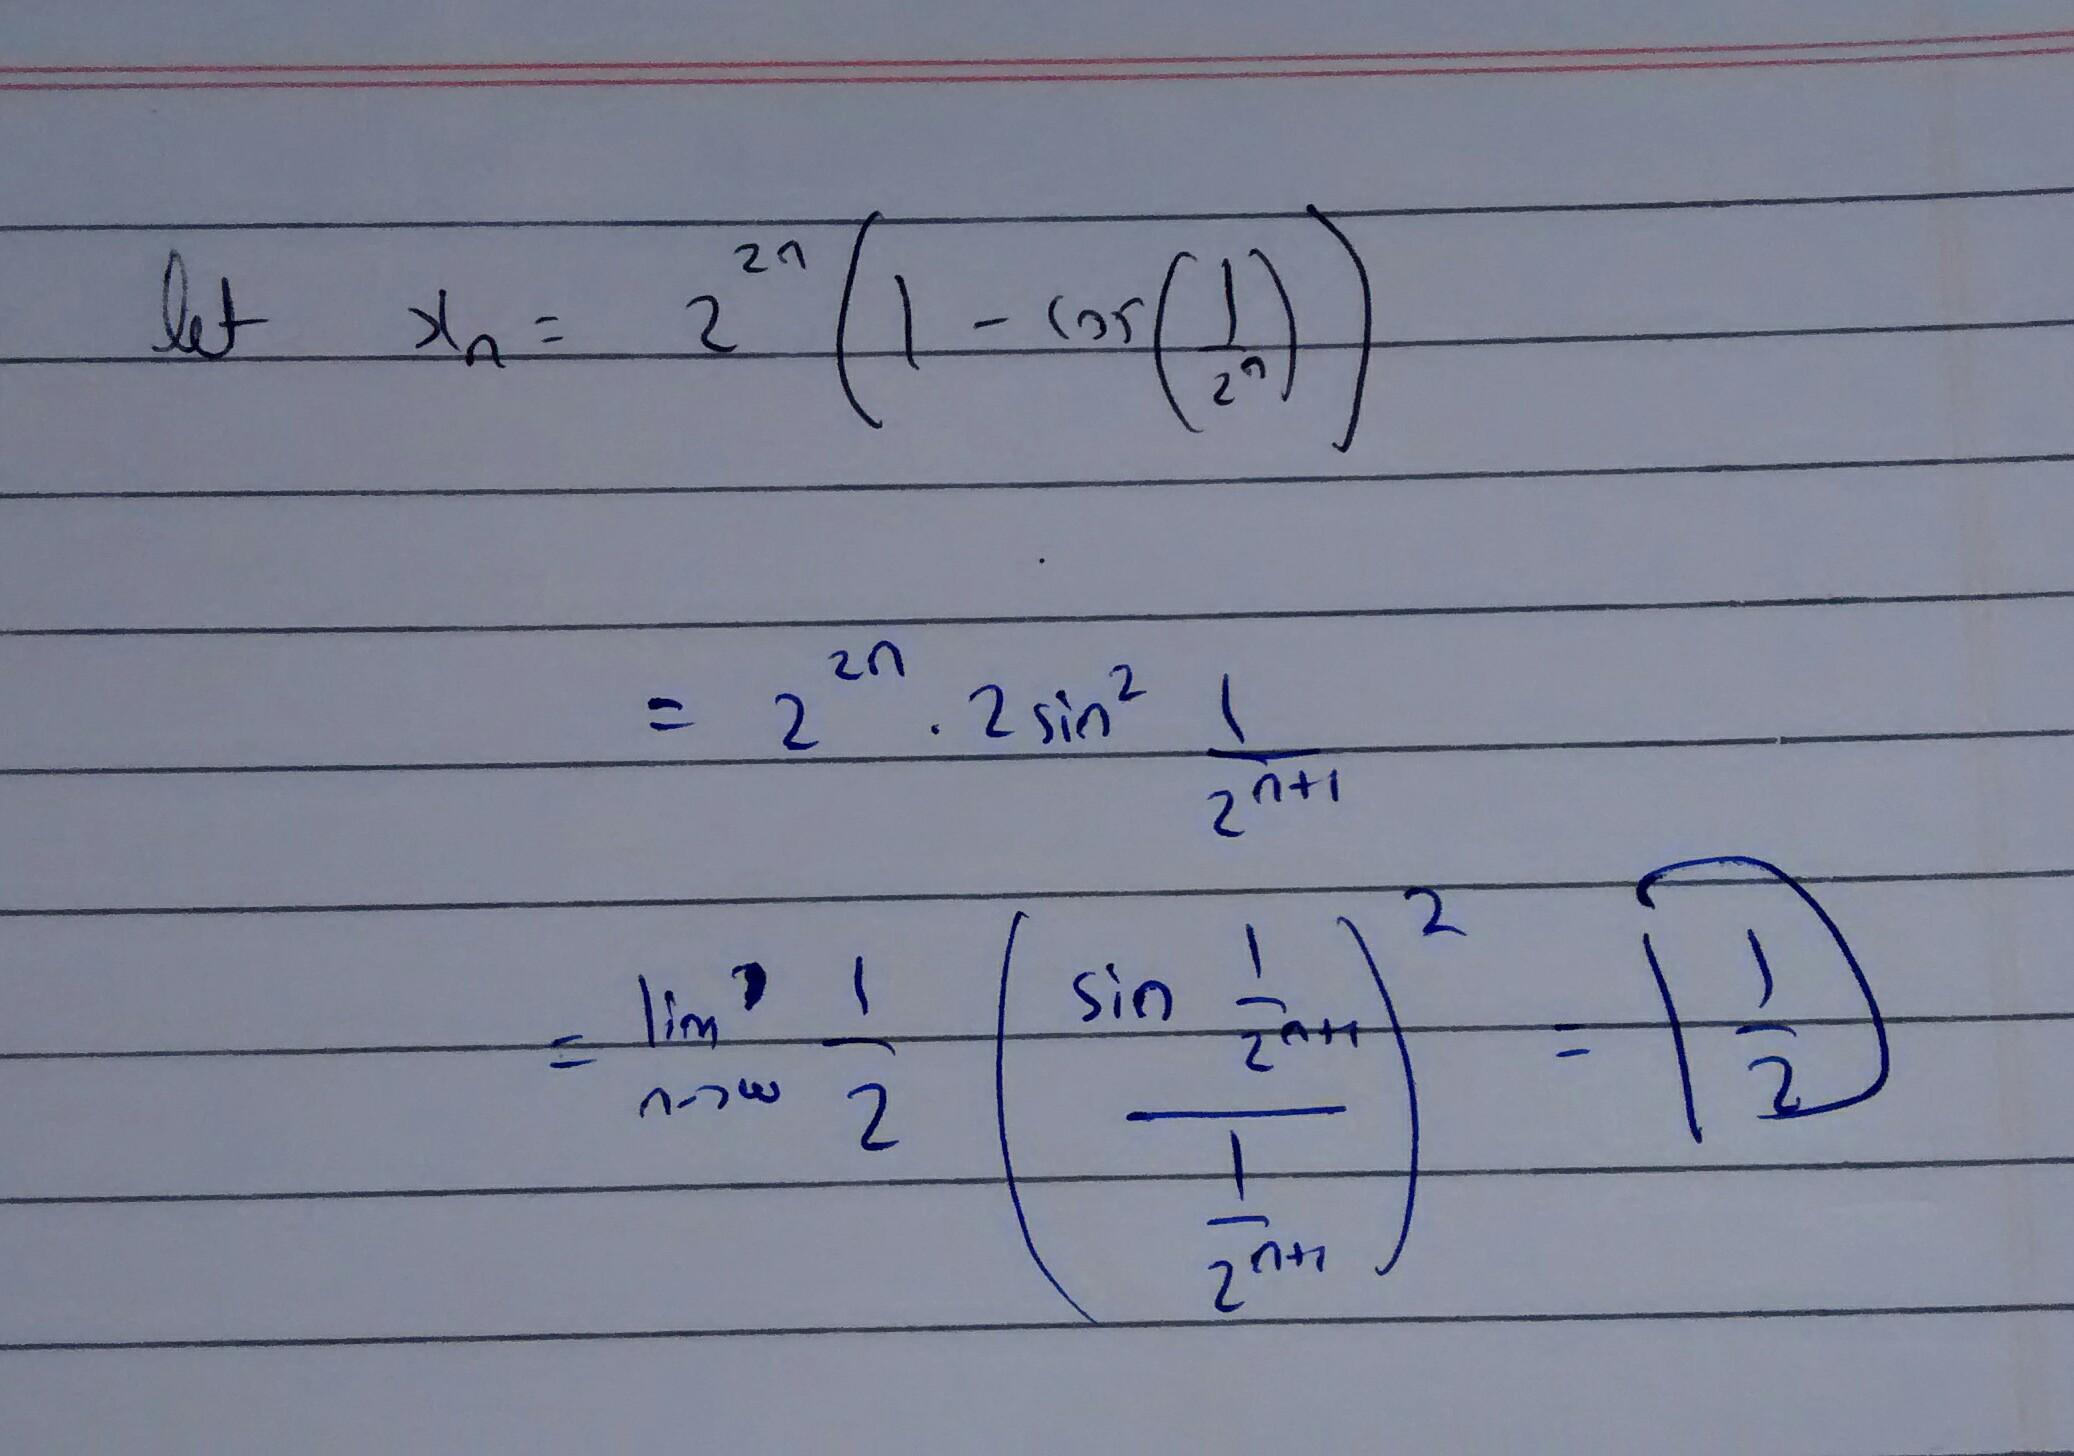 let xₙ = 2²ⁿ (1 - cos(1/2ⁿ))
= 2²ⁿ . 2 sin² 1/2ⁿ⁺¹
= lim n→∞ 1/2 (sin 1/2ⁿ⁺¹ / 1/2ⁿ⁺¹)² = 1/2